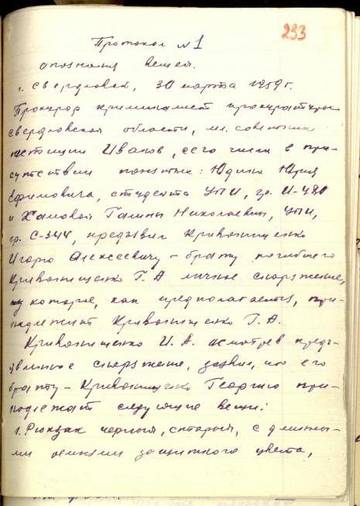 233
Протокол №1
опознания вещей.
г. Свердловск, 30 марта 1959г.
Прокурор криминалист прокуратуры
Свердловской области, мл. советник
юстиции Иванов, сего числа в при-
сутствии понятых: Юдина Юрия
Ефимовича, студента УПИ, гр. И-
и Галины Николаевны, УПИ,
гр. С-344, предъявил Кривонищенко
Игорю Алексеевичу - брату погибшего
Кривонищенко Г. А личное снаряжение,
которые, как предполагается, при-
надлежат Кривонищенко Г. А.
Кривонищенко И. А. осмотрев предъ-
явленное снаряжение, заявил, что его
брату - Кривонищенко Георгию при-
надлежат следующие вещи:
1. Рюкзак черный, старый, с длинны-
ми лямками защитного цвета,